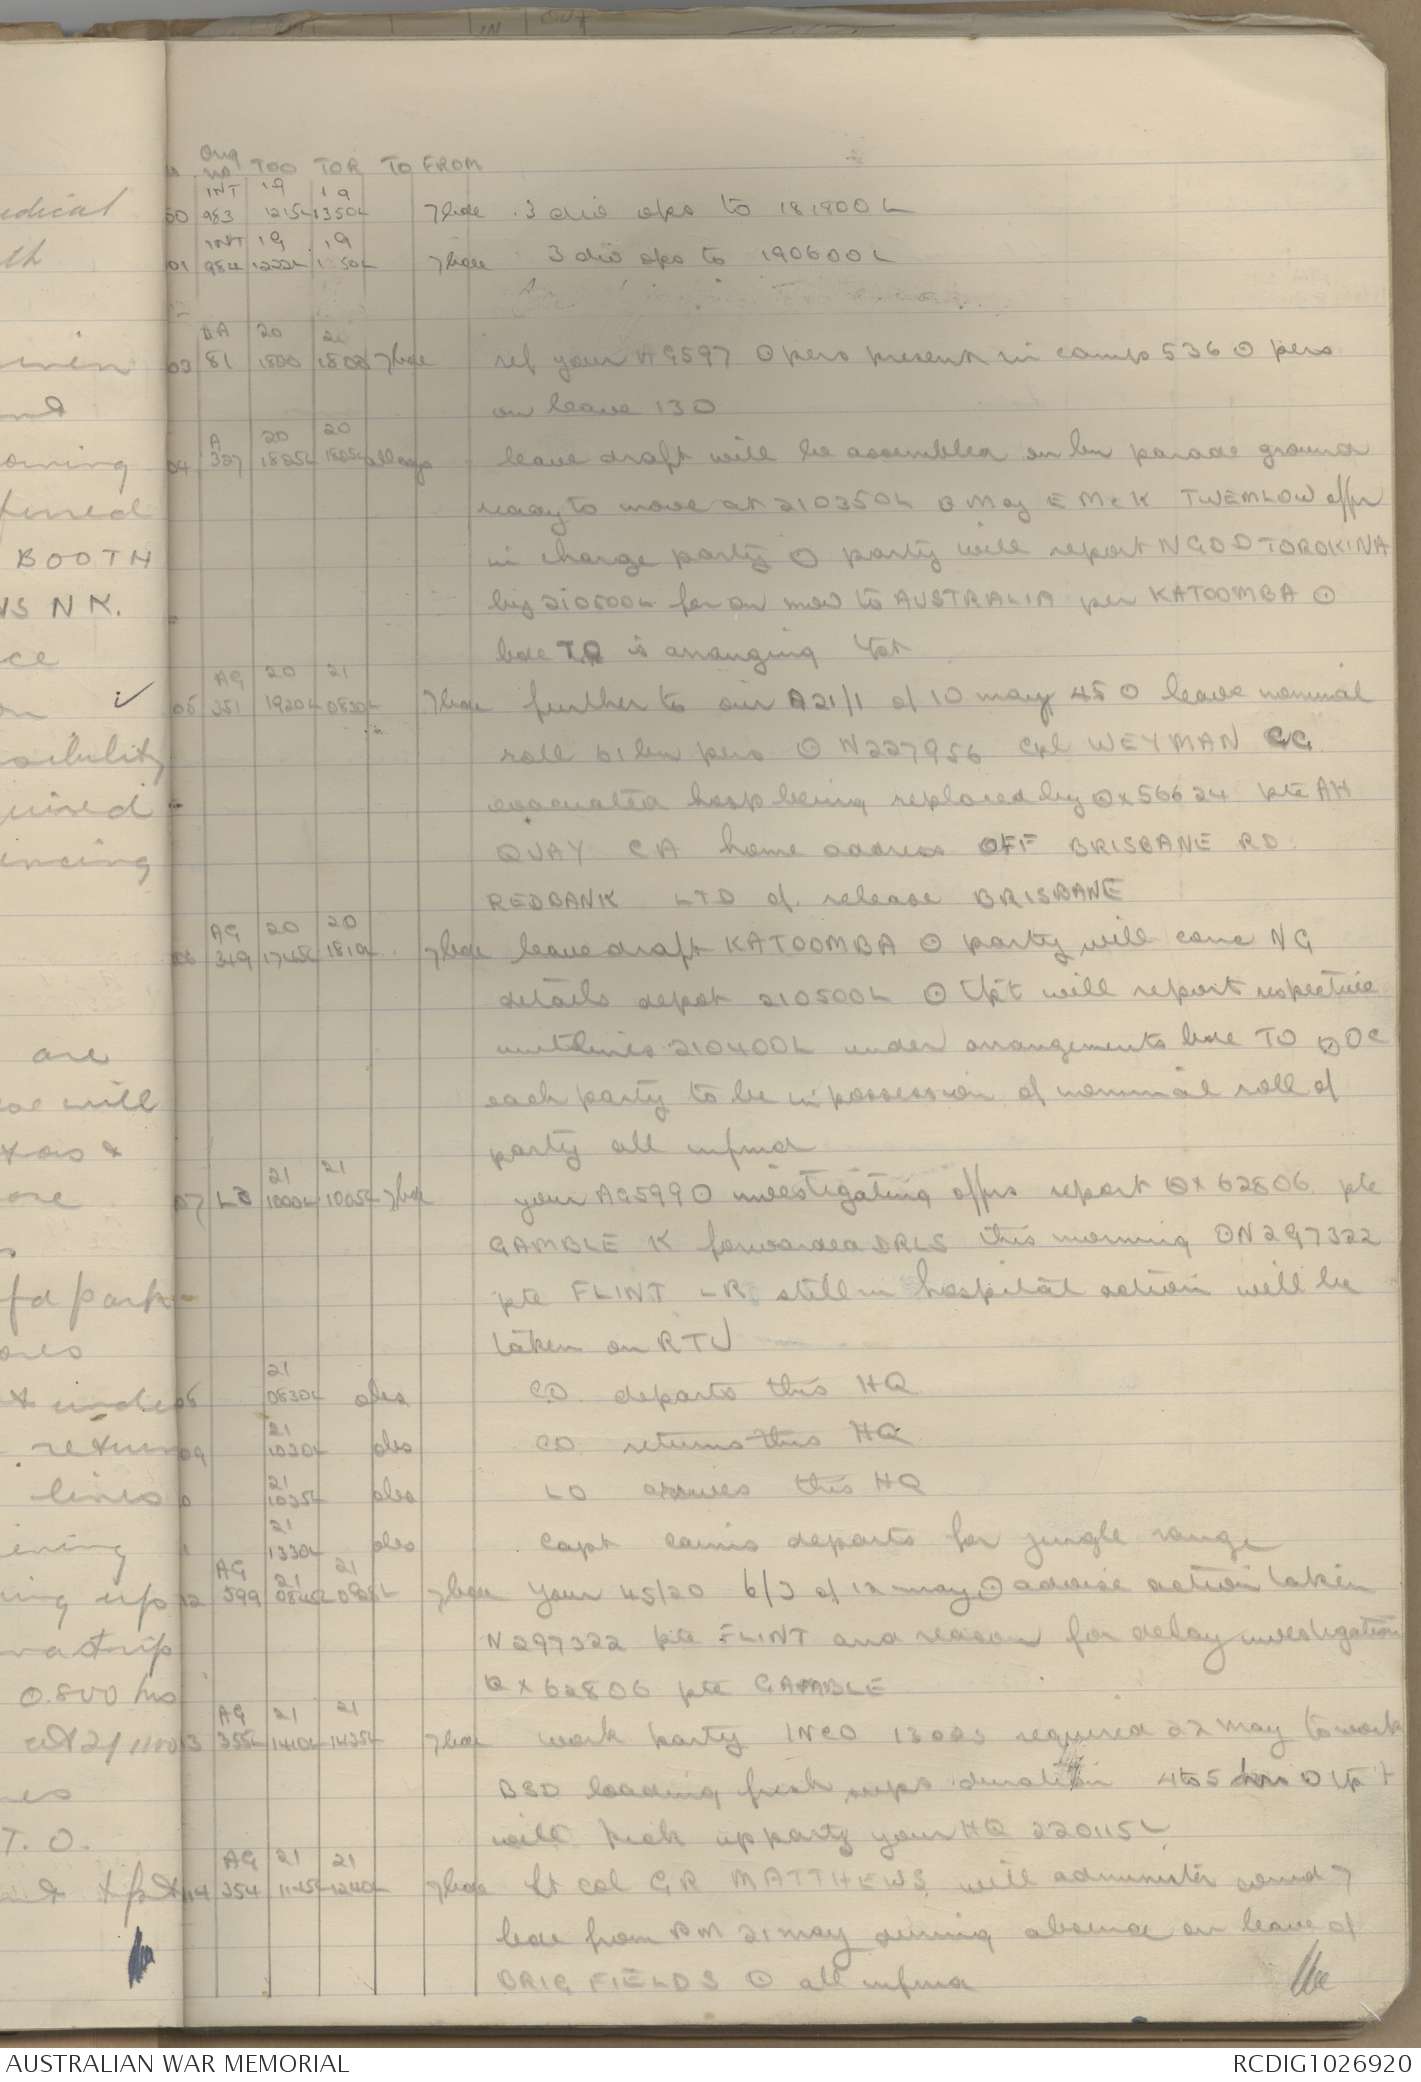 Orig
No TOO TOR TO FROM
INT 19 19
00 983 1215L 1350L 7 bde 3 div ops to 181800L
INT 19 19
01 984 1222L 1350L 7 bde 3 div ops to 190600L
20 20
03 81 1800 1800 7 bde ref your AG597 O pers present in camp 536 O pers
on leave 130
A 20 20
04 327 1825L leave draft will be assembled on bn parade ground
ready to move at 210350L O Maj E McK TWEMLOW offr
in charge party O party will report NGDD TOROKINA
by 210500L for on move to AUSTRALIA per KATOOMBA O
bde TO is arranging tpt
AG 20 21
05 351 1920L 0830L 7 bde further to our A21/1 of 10 may 45 O leave nominal
roll 61 bn pers O N227956 Cpl WEYMAN CG
evacuated hosp being replaced by QX56624 pte AH
QUAY CA home address OFF BRISBANE RD
REDBANK LTD of release BRISBANE
AG 20 20
06 349 1745L 1810L 7 bde leave draft KATOOMBA O party will conc NG
details depot 210500L O tpt will report respective
unit lines 210400L under arrangements bde TO O OC
each party to be in possession of nominal roll of
party all informed
21 21
07 L3 1000L 1005L 7 bde your AG599 O investigating offrs report QX62806 pte
GAMBLE K forwarded DRLS this morning O N297322
pte FLINT LR still in hospital action will be
taken on RTU
21
08 0830L obs CO departs this HQ
21
09 1030L obs CO returns this HQ
21
0 1035L obs LO arrives this HQ
21
1 1330L obs Capt Cairns departs for jungle range
AG 21 21
12 599 0845L 0925L 7 bde your 45/20 6/3 of 12 may O advise action taken
N297322 pte FLINT and reason for delay investigation
QX62806 pte GAMBLE
AG 21 21
13 355L 1410L 1435L 7 bde work party 1NCO 13 ORs required 22 may to work
BSD loading fresh sups duration 4 to 5 hrs O tpt
will pick up party your HQ 220115L
AG 21 21
14 354 1145L 1240L 7 bde Lt Col GR MATTHEWS will administer comd 7
bde from PM 21 may during absence on leave of
BRIG FIELDS O all informed
edical
th
and
BOOTH
NS NK.
ce
on
osibility
quired
are
will
ore
fd park
return
lines
ening
ing up
airstrip
0800 hrs
T. O.
AUSTRALIAN WAR MEMORIAL
RCDIG1026920